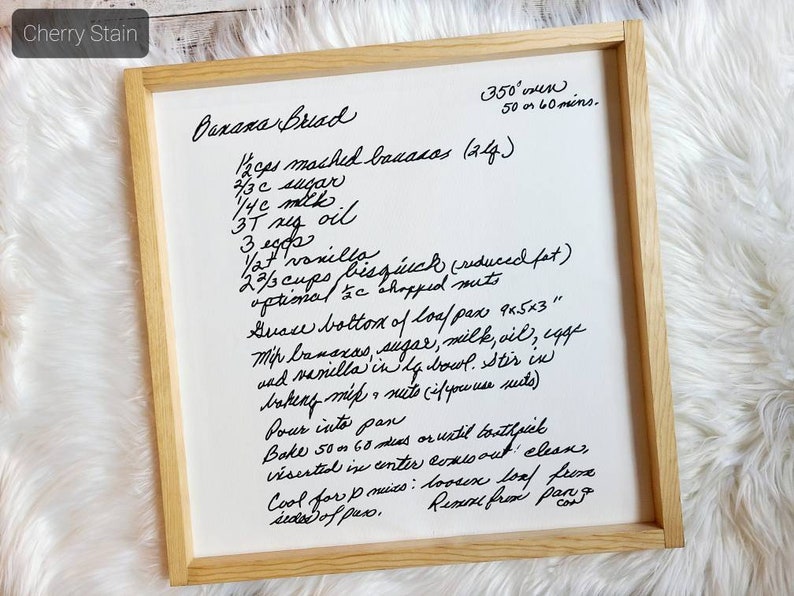 Cherry Stain
Banana Bread
350° oven
50 or 60 mins.
1 1/2 cps mashed bananas (2 lg.)
2/3 c sugar
1/4 c milk
3 T veg oil
3 eggs
1/2 t vanilla
2 2/3 cups bisquick (reduced fat)
optional 1/2 c chopped nuts
Grease bottom of loaf pan 9x5x3"
Mix bananas, sugar, milk, oil, eggs
and vanilla in lg bowl. Stir in
baking mix & nuts (if you use nuts)
Pour into pan
Bake 50 or 60 mins or until toothpick
inserted in center comes out clean.
Cool for 10 mins: loosen loaf from
sides of pan. Remove from pan &
cool